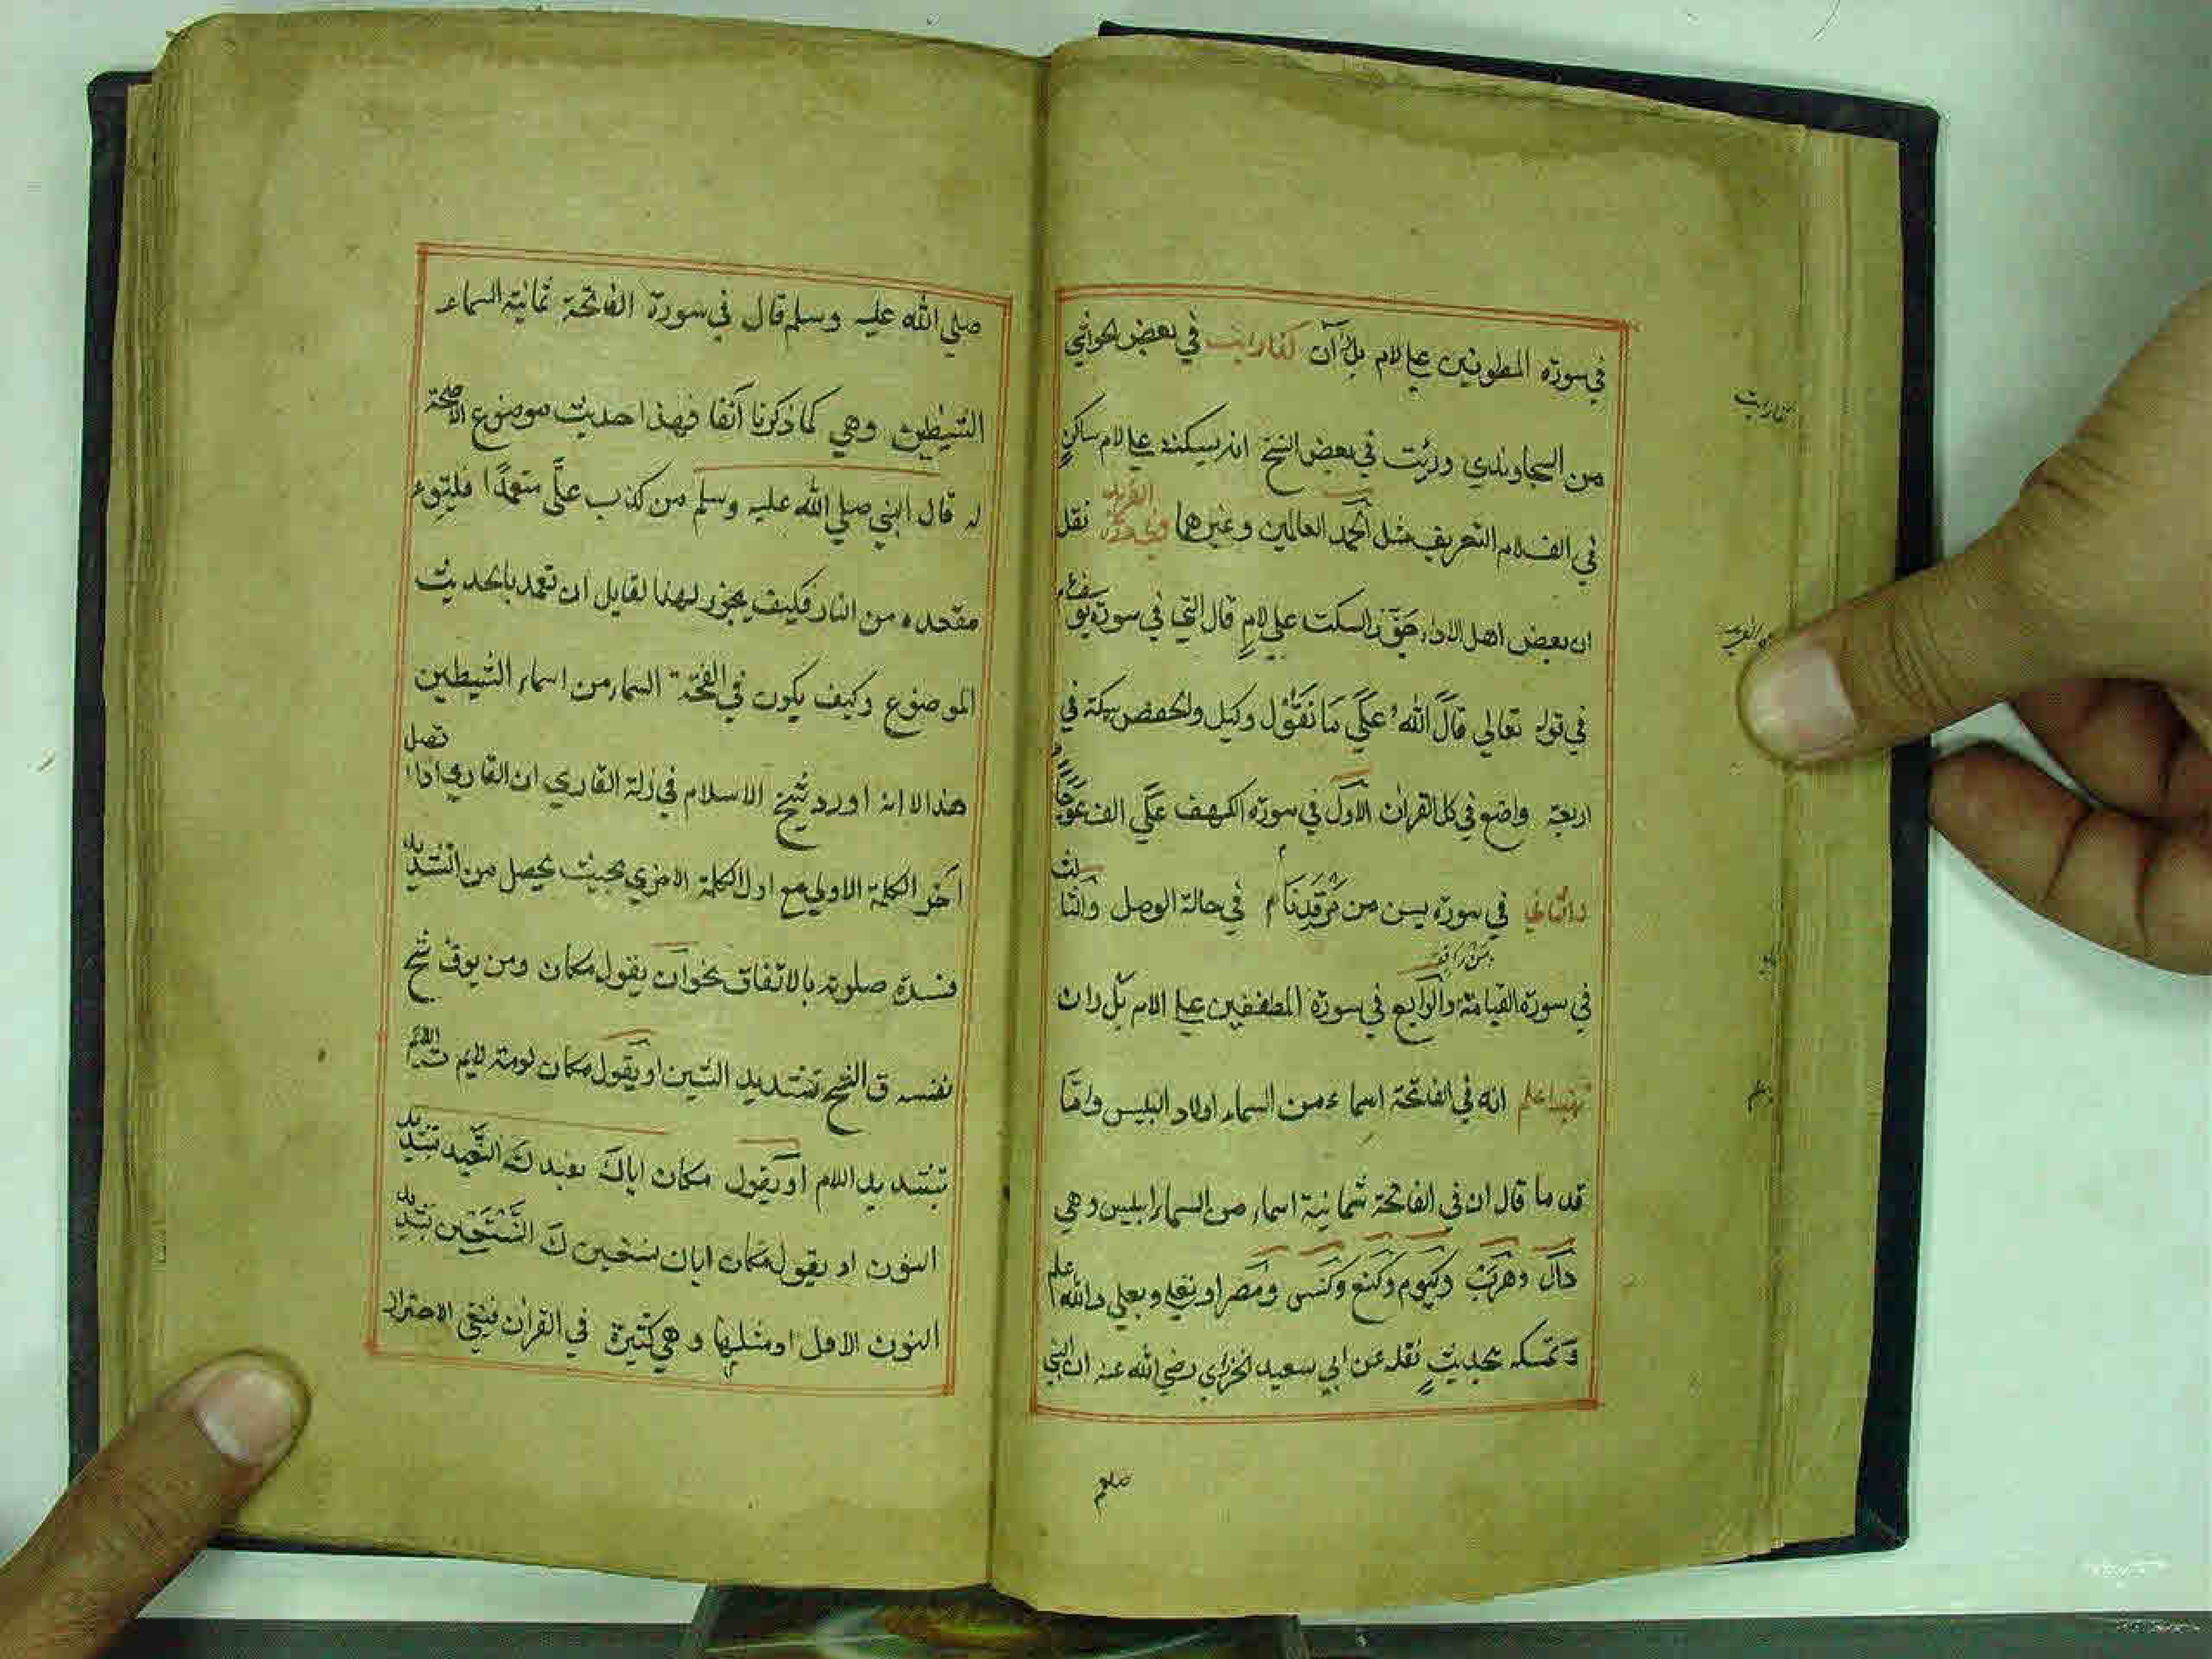 في سورة المطوفين علي لام بل ران كذا رايت في بعض الحواشي
من السجاوندي ورئيت في بعض النسخ انه يسكته علي لام ساكن
في الف لام التعريف مثل الحمد العالمين وغيرهما نقل
ان بعض اهل الاداء السكت علي لام قال التي في سورة يوسف ع م
في قوله تعالي قَالَ اللّٰهُ عَلَي مَا نَقُوْلُ وكيل ولحفص سكتة في
اربعة واضع في كل القران الاول في سورة الكهف عَلَي الف عِوَجًا
والثاني في سورة يسن من مَرْقَدِنَا م في حالة الوصل والثالث
في سورة القيامة مَنْ رَاقٍ والرابع في سورة المطففين علي الام بل ران
اعلم انه في الفاتحة اسماء من السماء اولاد ابليس واما
قد ما قال ان في الفاتحة ثمانية اسماء من السماء ابليس وهي
دلل وهرب وكيوم وكنع وكنس و وبعلي والله اعلم
وتمسكه بحديث نقله عن ابي سعيد الخزري رضي الله عنه ان النبي
صلعم
صلي الله عليه وسلم قال في سورة الفاتحة ثمانية السماء
الشيطين وهي كما ذكرنا آنفا فهذا حديث موضوع لا صحة
له قال النبي صلي الله عليه وسلم من كذب عليَّ متعمدًا فليتبوء
مقعده من النار فكيف يجوز لهذا لقايل ان تعمد بالحديث
الموضوع وكيف يكون في الفتحة السماء من اسماء الشيطين
هذا الا انه اورد شيخ الاسلام في زلة القاري ان القاري اذا تصل
آخر الكلمة الاولي مع اول الكلمة الاخري بحيث يحصل من التشديد
فسدة صلوته بالاتفاق نحو ان يقول مكان ومن يوق شح
نفسه ق الشح بتشديد الشين او يقول مكان لومة لايم ت اللايم
بتشديد اللام او يقول مكان اياك نعبد ك النَّعبد بتشديد
النون او يقول مكان اياك نستعين كَ النَّسْتَعِين بتشديد
النون الاول او مثلها وهي كثيرة في القران فينبغي الاحتراز